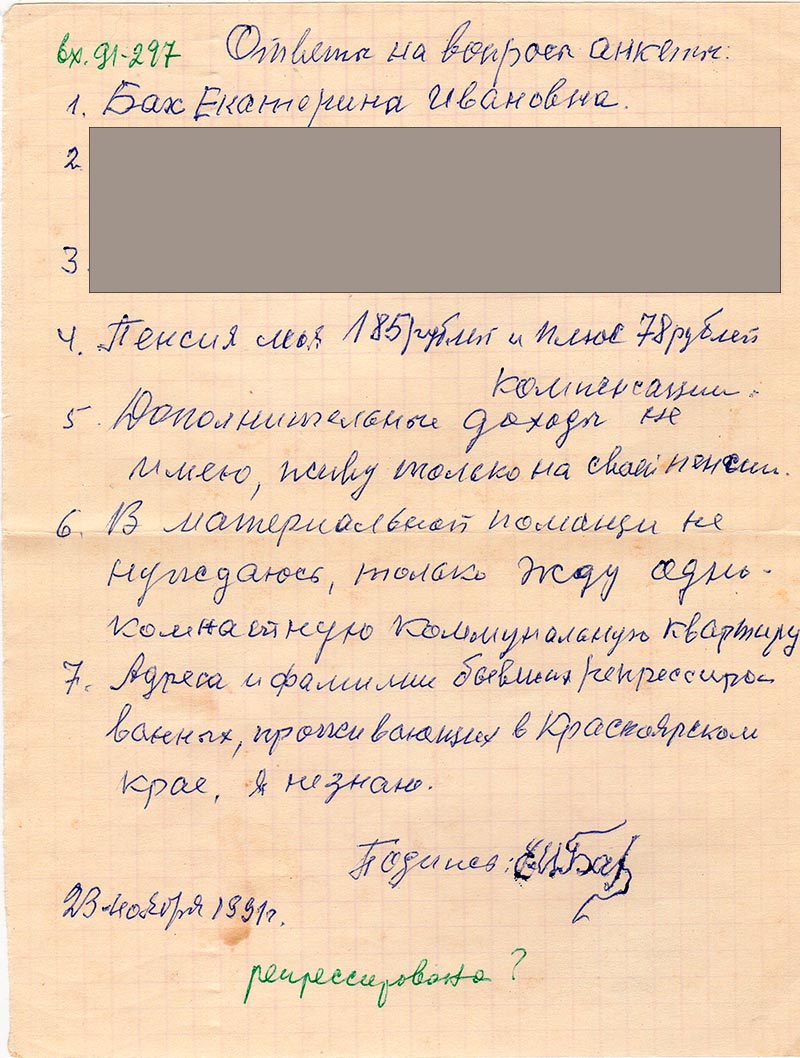 вх. 91-297 Ответы на вопросы анкеты:
1. Бах Екатерина Ивановна.
2.
3.
4. Пенсия моя 185 рублей и плюс 78 рублей
компенсации.
5. Дополнительные доходы не
имею, живу только на свои пенсии.
6. В материальной помощи не
нуждаюсь, только жду одно-
комнатную коммунальную квартиру
7. Адреса и фамилии бывших репрессиро-
ванных, проживающих в Красноярском
крае, я не знаю.
Подпись: ЕИБах
23 ноября 1991г.
репрессирована?